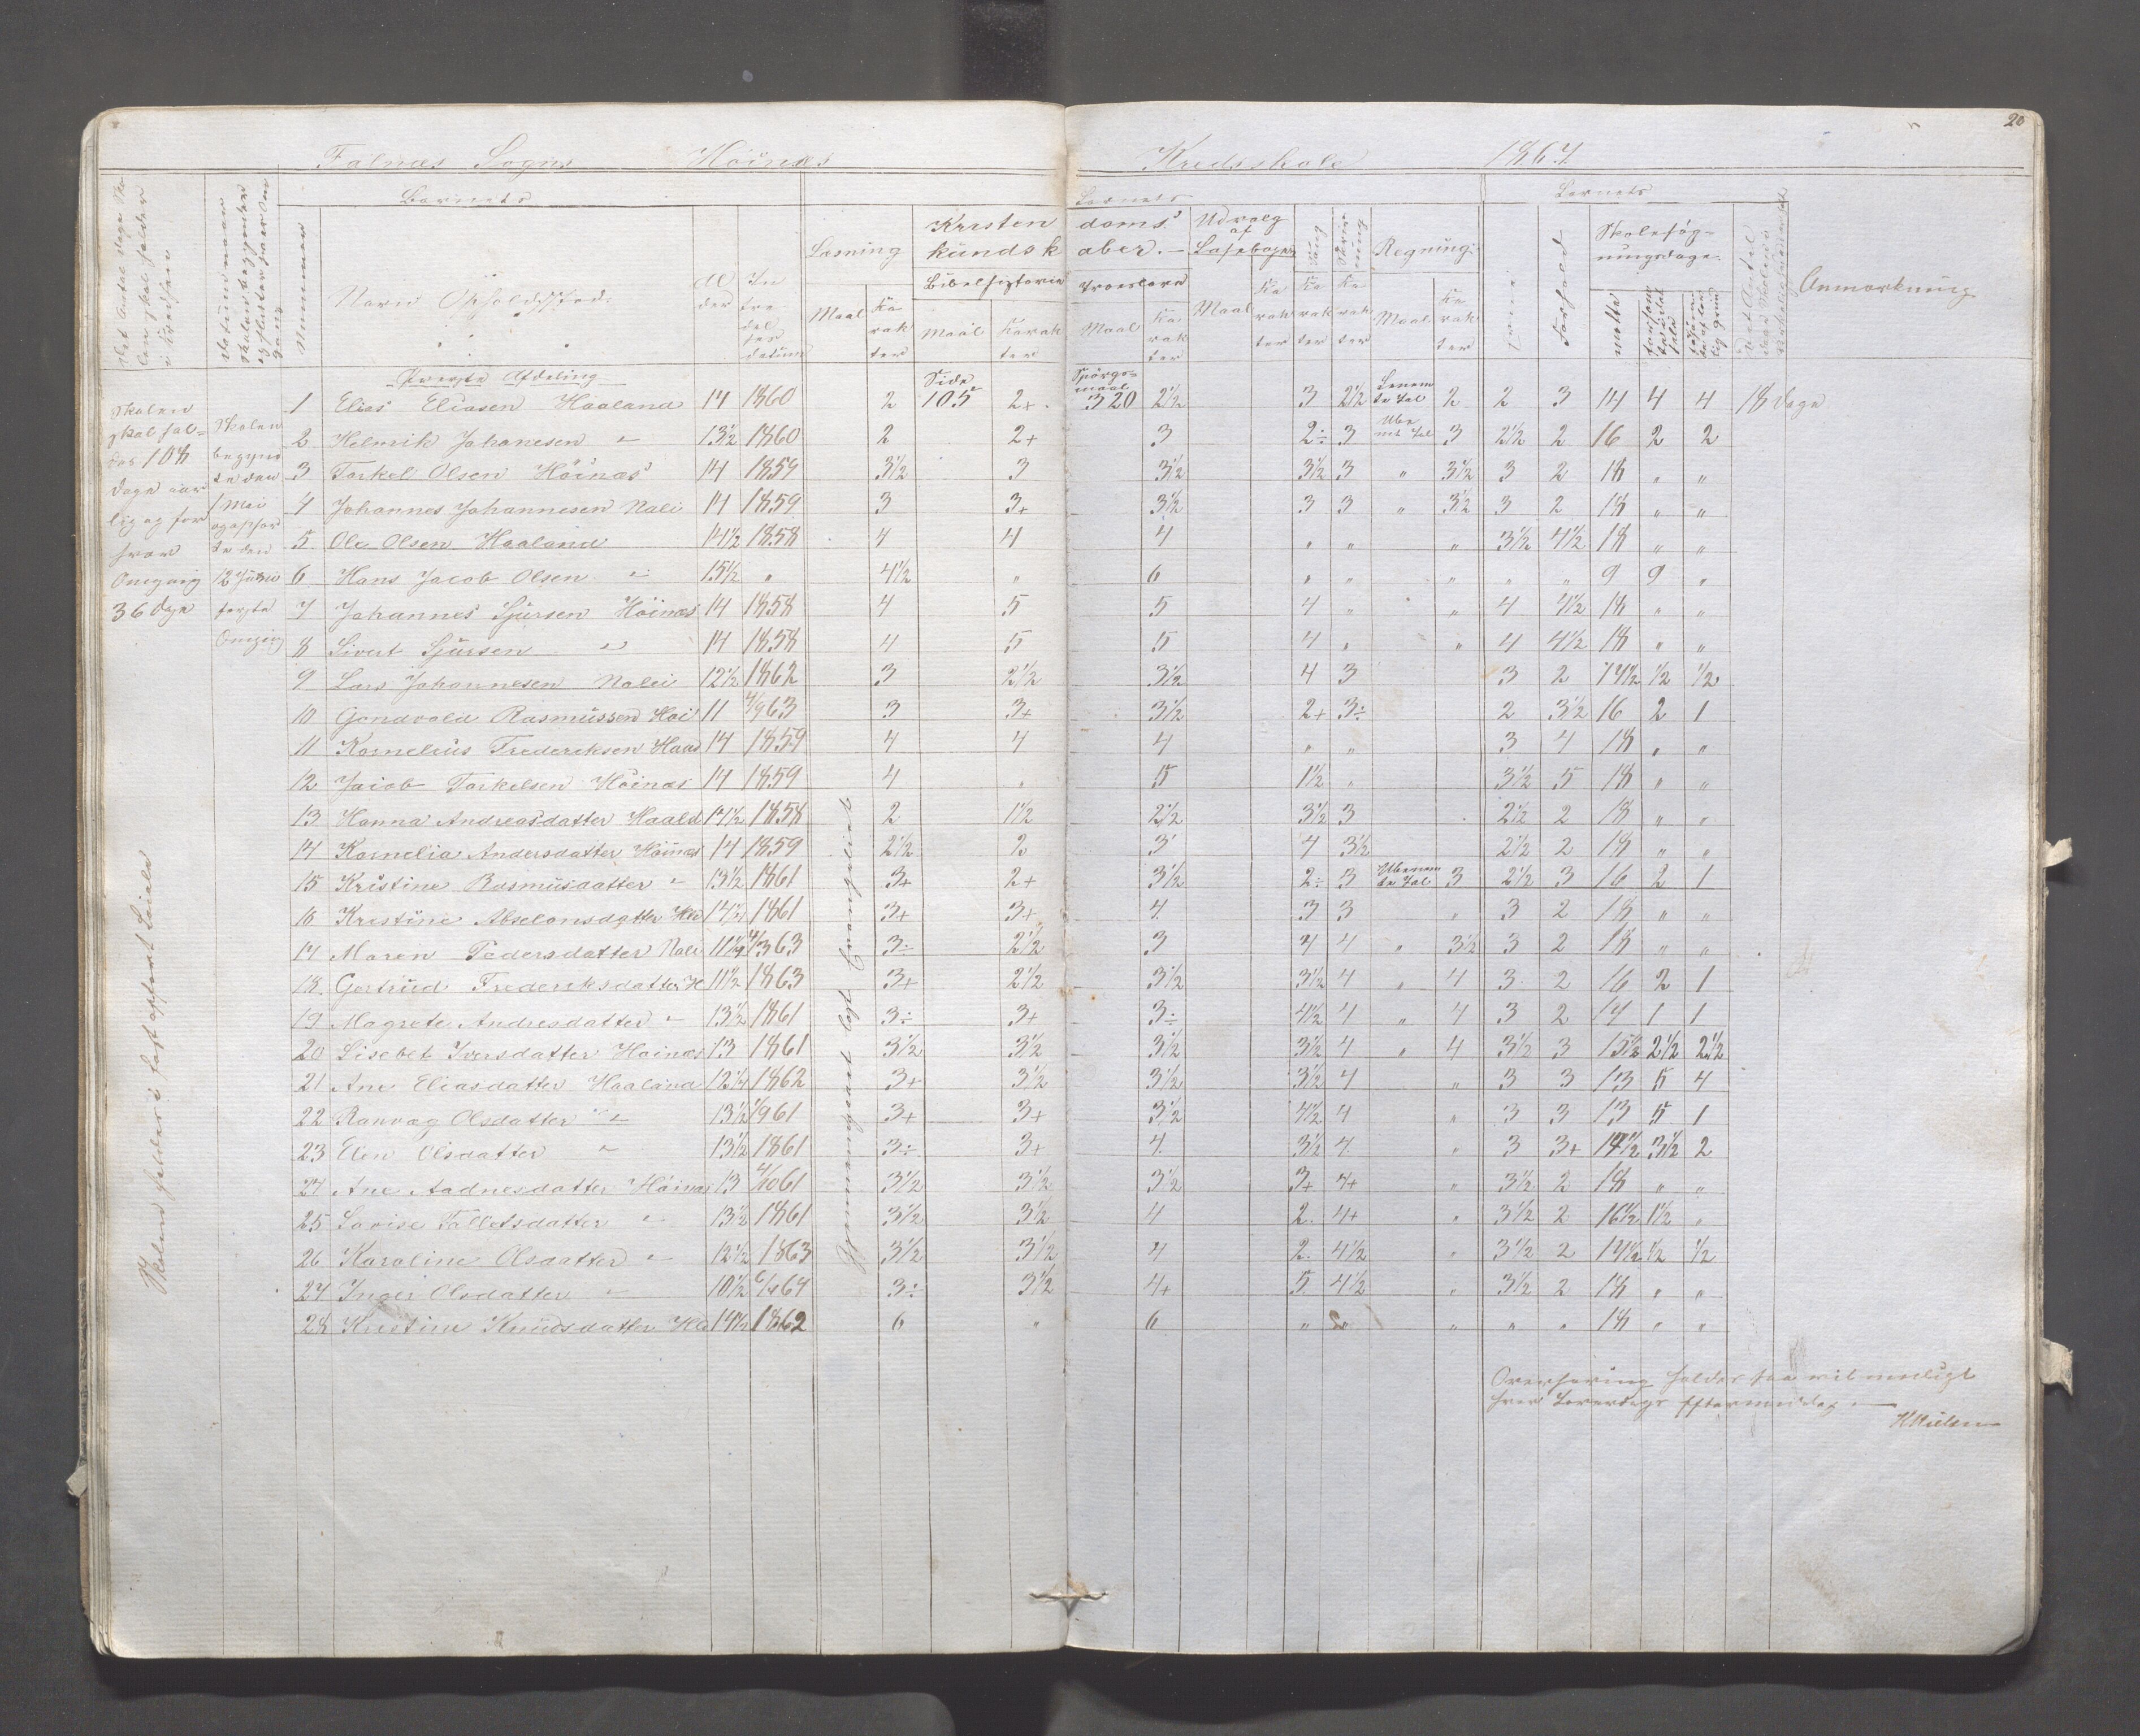 20
Falnæs Sogns Höinæs Kredsskole 1867.
Barnets
Nummer
Navn Opholdssted.
Al der
In tre del ses datum
Læsning
Maal
Ka rak ter
Kristen doms
kundsk aber. -
Bibelhistorie
Maal
Karak ter
Troeslære
Maal
Ka rak ter
Udvalg af Læsebogen
Maal
Ka rak ter
Sang
Ka rak ter
Skriv ning
Ka rak ter
Regning.
Maal
Ka rak ter
Evne
Forhold
Skolesøg-
ningsdage.
mødte
Anmærkning
Øverste Afdeling
Side
Spörgs-
maal
1 Elias Eliasen Haaland 14 1860 2 105 2+ 320 2½ 3 2½ Benevn te Tal 2 2 3 14 4 4 18 dage
2 Helmik Johanesen " 13½ 1860 2 2+ 3 2÷ 3 Ube nte Tal 3 2½ 2 16 2 2
3 Torkel Olsen Höinæs 14 1859 3½ 3 3½ 3½ 3 " 3½ 3 2 18 " "
4 Johannes Johannesen Nali 14 1859 3 3+ 3½ 3 3 " 3½ 3 2 18 " "
5 Ole Olsen Haaland 14½ 1858 4 4 4 " " " 3½ 4½ 18 " "
6 Hans Jacob Olsen " 15½ " 4½ " 6 " " " " " 9 9 "
7 Johannes Sjursen Höinæs 14 1858 4 5 5 4 " " 4 4½ 18 " "
8 Sivert Sjursen " 14 1858 4 5 5 4 " " 4 4½ 18 " "
9 Lars Johannesen Nalei 12½ 1862 3 2½ 3½ 4 3 3 2 17½ ½ ½
10 Gondvold Rasmussen Höi 11 4/9 63 3 3+ 3½ 2+ 3÷ 2 3½ 16 2 1
11 Kornelius Frederksen Haa 14 1859 4 4 4 " " 3 4 18 " "
12 Jacob Torkelsen Höinæs 14 1859 4 " 5 1½ " 3½ 5 18 " "
13 Hanna Andreasdatter Haald 14½ 1858 2 1½ 2½ 3½ 3 2½ 2 18 " "
14 Kornelia Andersdatter Höinæs 14 1859 2½ 2 3 4 3½ 2½ 2 18 " "
15 Kristine Rasmusdatter " 13½ 1861 3+ 2+ 3½ 2÷ 3 Ubenevn te Tal 3 2½ 3 16 2 1
16 Kristine Abselonsdatter 14½ 1861 3+ 3+ 4 3 3 " 3 2 18 " "
17 Maren Pedersdatter Nali 11½ 4/3 63 3÷ 2½ 3 4 4 " 3½ 3 2 18 " "
18 Gertrud Frederiksdatter H 11½ 1863 3+ 2½ 3½ 3½ 4 " 4 3 2 16 2 1
19 Magrete Andresdatter " 13½ 1861 3÷ 3+ 3÷ 4½ 4 " 4 3 2 17 1 1
20 Lisebet Iversdatter Höinæs 13 1861 3½ 3½ 3½ 3½ 4 " 4 3½ 3 15½ 2½ 2½
21 Ane Eliasdatter Haaland 12¼ 1862 3+ 3½ 3½ 3½ 4 " 3 3 13 5 4
22 Ranvag Olsdatter " 13½ 1/9 61 3+ 3+ 3½ 4½ 4 " 3 3 13 5 1
23 Elen Olsdatter " 13½ 1861 3÷ 3+ 4 3½ 4 " 3 3+ 14½ 3½ 2
24 Ane Aadnesdatter Höinæs 13 4/10 61 3½ 3½ 3½ 3+ 4+ " 3½ 2 18 " "
25 Lovise Tolletsdatter " 13½ 1861 3½ 3½ 4 2 4+ " 3½ 2 16½ 1½ "
26 Karoline Olsdatter " 12½ 1863 3½ 3½ 4 2 4½ " 3½ 2 17½ ½ ½
27 Inger Olsdatter " 10½ 64 3÷ 3½ 4+ 5 4½ " 3½ 2 18 " "
28 Kristine Knudsdatter 14½ 1862 6 " 6 " " " " " 18 " "
Skolen
skal hol-
des 108
dage aar
lig og for
hver
Omgang
36 dage
Skolen
begynd
te den
1 Mai
og ophør
te den
12 Juni
første
Omgang
Gjennemgaaet lidt Evangeliet
Overhöring holdes saa vidt muligt
hver Løverdags Eftermiddag